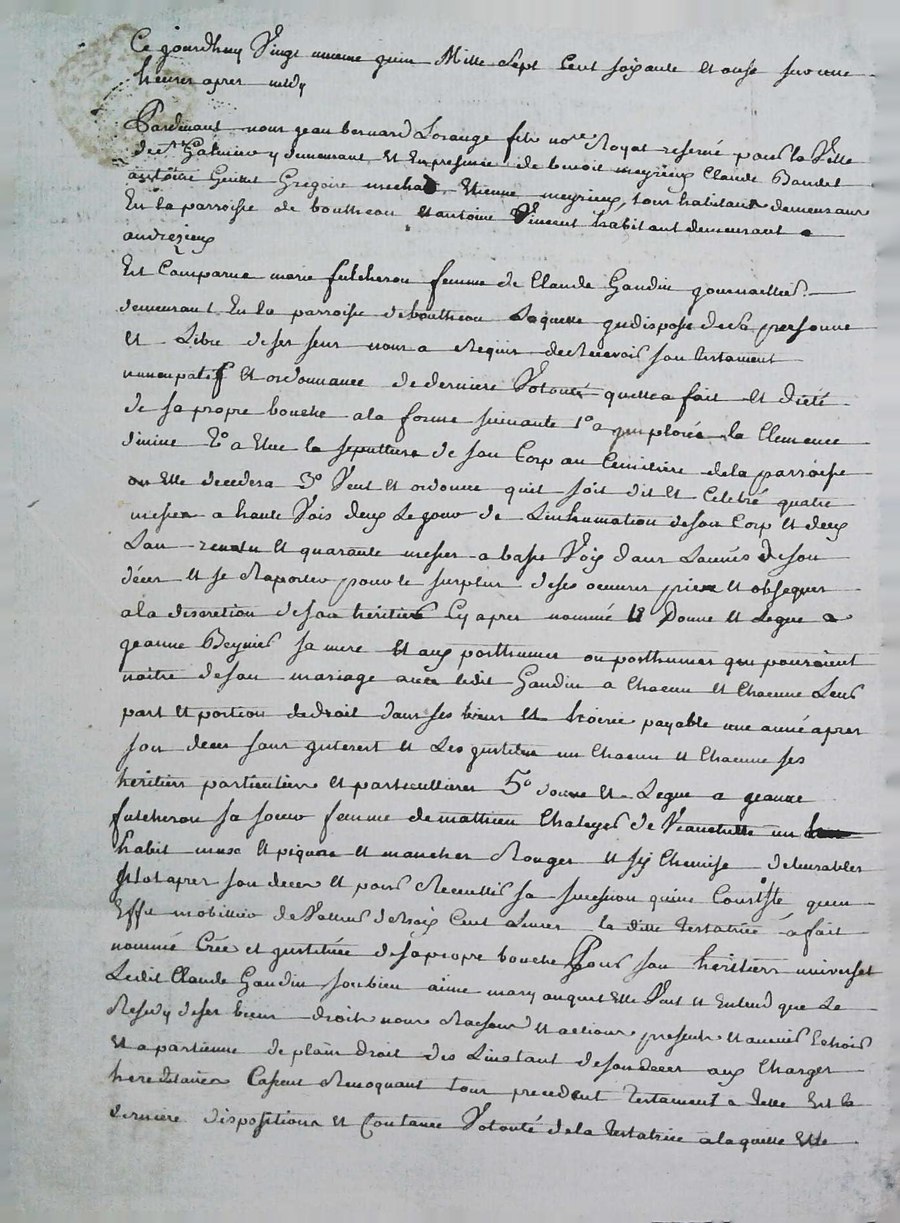 Ce jourdhuy Vingt uneme juin Mille Sept Cent soixante et onze sur une
heure apres midy
Pardevant nous jean bernard Lorange fils no.re Royal reservé pour la Ville
de s.t Galmier y demeurant et En presence de benoit meyrieux Claude Baudet
antoine Gregoire michad Etienne meyrieux, tous habitans demeurans
En la parroisse de boutheon et antoine Vincent habitant demeurant a
andrezieux
Est Comparue marie fulcheron femme de Claude Gaudin journallier
demeurant En la parroisse de boutheon Laquelle jndisposé de sa personne
et Libre de ses sens nous a Requis de Recevoir son testament
nuncupatif et ordonnance de derniere Volonté quelle a fait et dicté
de sa propre bouche a la forme suivante 1o a jmploré la Clemence
divine 2o a Elue la sepulture de son Corp au Cimitière de la parroisse
ou Elle decedera 3o Veut et ordonne quil soit dit et Celebré quatre
messes a haute Vois deux Le jour de Linhumation de son Corp et deux
Lan revolu et quarante messes a basse Voix dans Lannée de son
déces et se Raporter pour le surplus de ses oeuvres pies et obseques
a la discretion de son heritier Cy apres nommé 4o Donne et Legue a
jeanne Beynier sa mere et aux posthumes ou posthumes qui pouroient
naitre de son mariage avec ledit Gaudin a Chacun et Chacune Leur
part et portion de droit dans ses biens et hoirie payable une année apres
son deces sans jnterest et Les jnstitue un Chacun et Chacune ses
heritiers particuliers et particullieres 5o donne et Legue a jeanne
fulcheron sa soeur femme de mathieu Chaleyer de Veauchette un
habit et et manches Rouges et six Chemise delivrables
sitot apres son deces et pour Recueillir sa succession qui ne Consiste quen
Effet mobillier de Valleur de Trois Cent Livres la ditte testatrice a fait
nommé Créé et jnstituée de sa propre bouche Pour son heritier universel
Ledit Claude Gaudin son bien aimé mary auquel Elle Veut et Entend que Le
Residu de ses biens droits noms Raisons et actions present et avenir Echoir
et apartienne de plain droit des Linstant de son deces aux Charges
hereditaires Cassent Revoquant tous precedent testament a telle Est la
derniere disposition et Constance Volonté de la testatrice a laquelle Elle